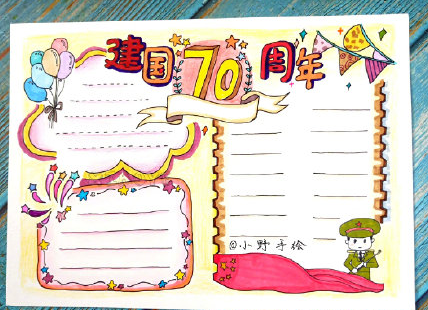 建国70周年
@小野手绘